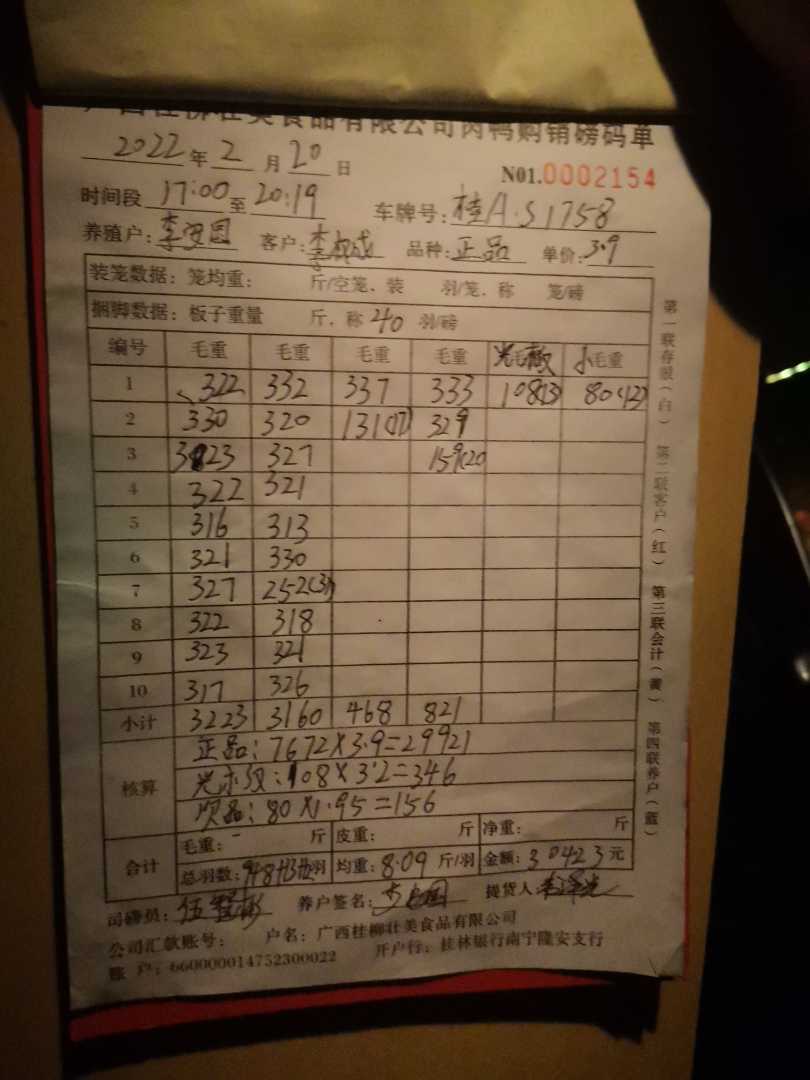 广西桂柳壮美食品有限公司肉鸭购销磅码单
2022年2月20日 N01.0002154
时间段17:00至20:19 车牌号:桂A·S1758
养殖户:李 客户:李 品种:正品 单价:3.9
装笼数据:笼均重: 斤/空笼、装 羽/笼、称 笼/磅
捆脚数据:板子重量 斤、称40羽/磅
编号 毛重 毛重 毛重 毛重 毛 小毛重
1 322 332 337 333 108(13) 80(12)
2 330 320 131(17) 329
3 323 327 159(20
4 322 321
5 316 313
6 321 330
7 327 252(31)
8 322 318
9 323 321
10 317 326
小计 3223 3160 468 821
核算 正品:7672×3.9=29921
:108×3.2=346
次品:80×1.95=156
合计 毛重:- 斤 皮重: 斤 净重: 斤
总羽数:948+13+12羽 均重:8.09斤/羽 金额:30423元
司磅员:伍 养户签名:李 提货人:李
公司汇款账号: 户名:广西桂柳壮美食品有限公司
账 户:660000014752300022 开户行:桂林银行南宁隆安支行
第一联存根(白) 第二联客户(红) 第三联会计(黄) 第四联养户(蓝)